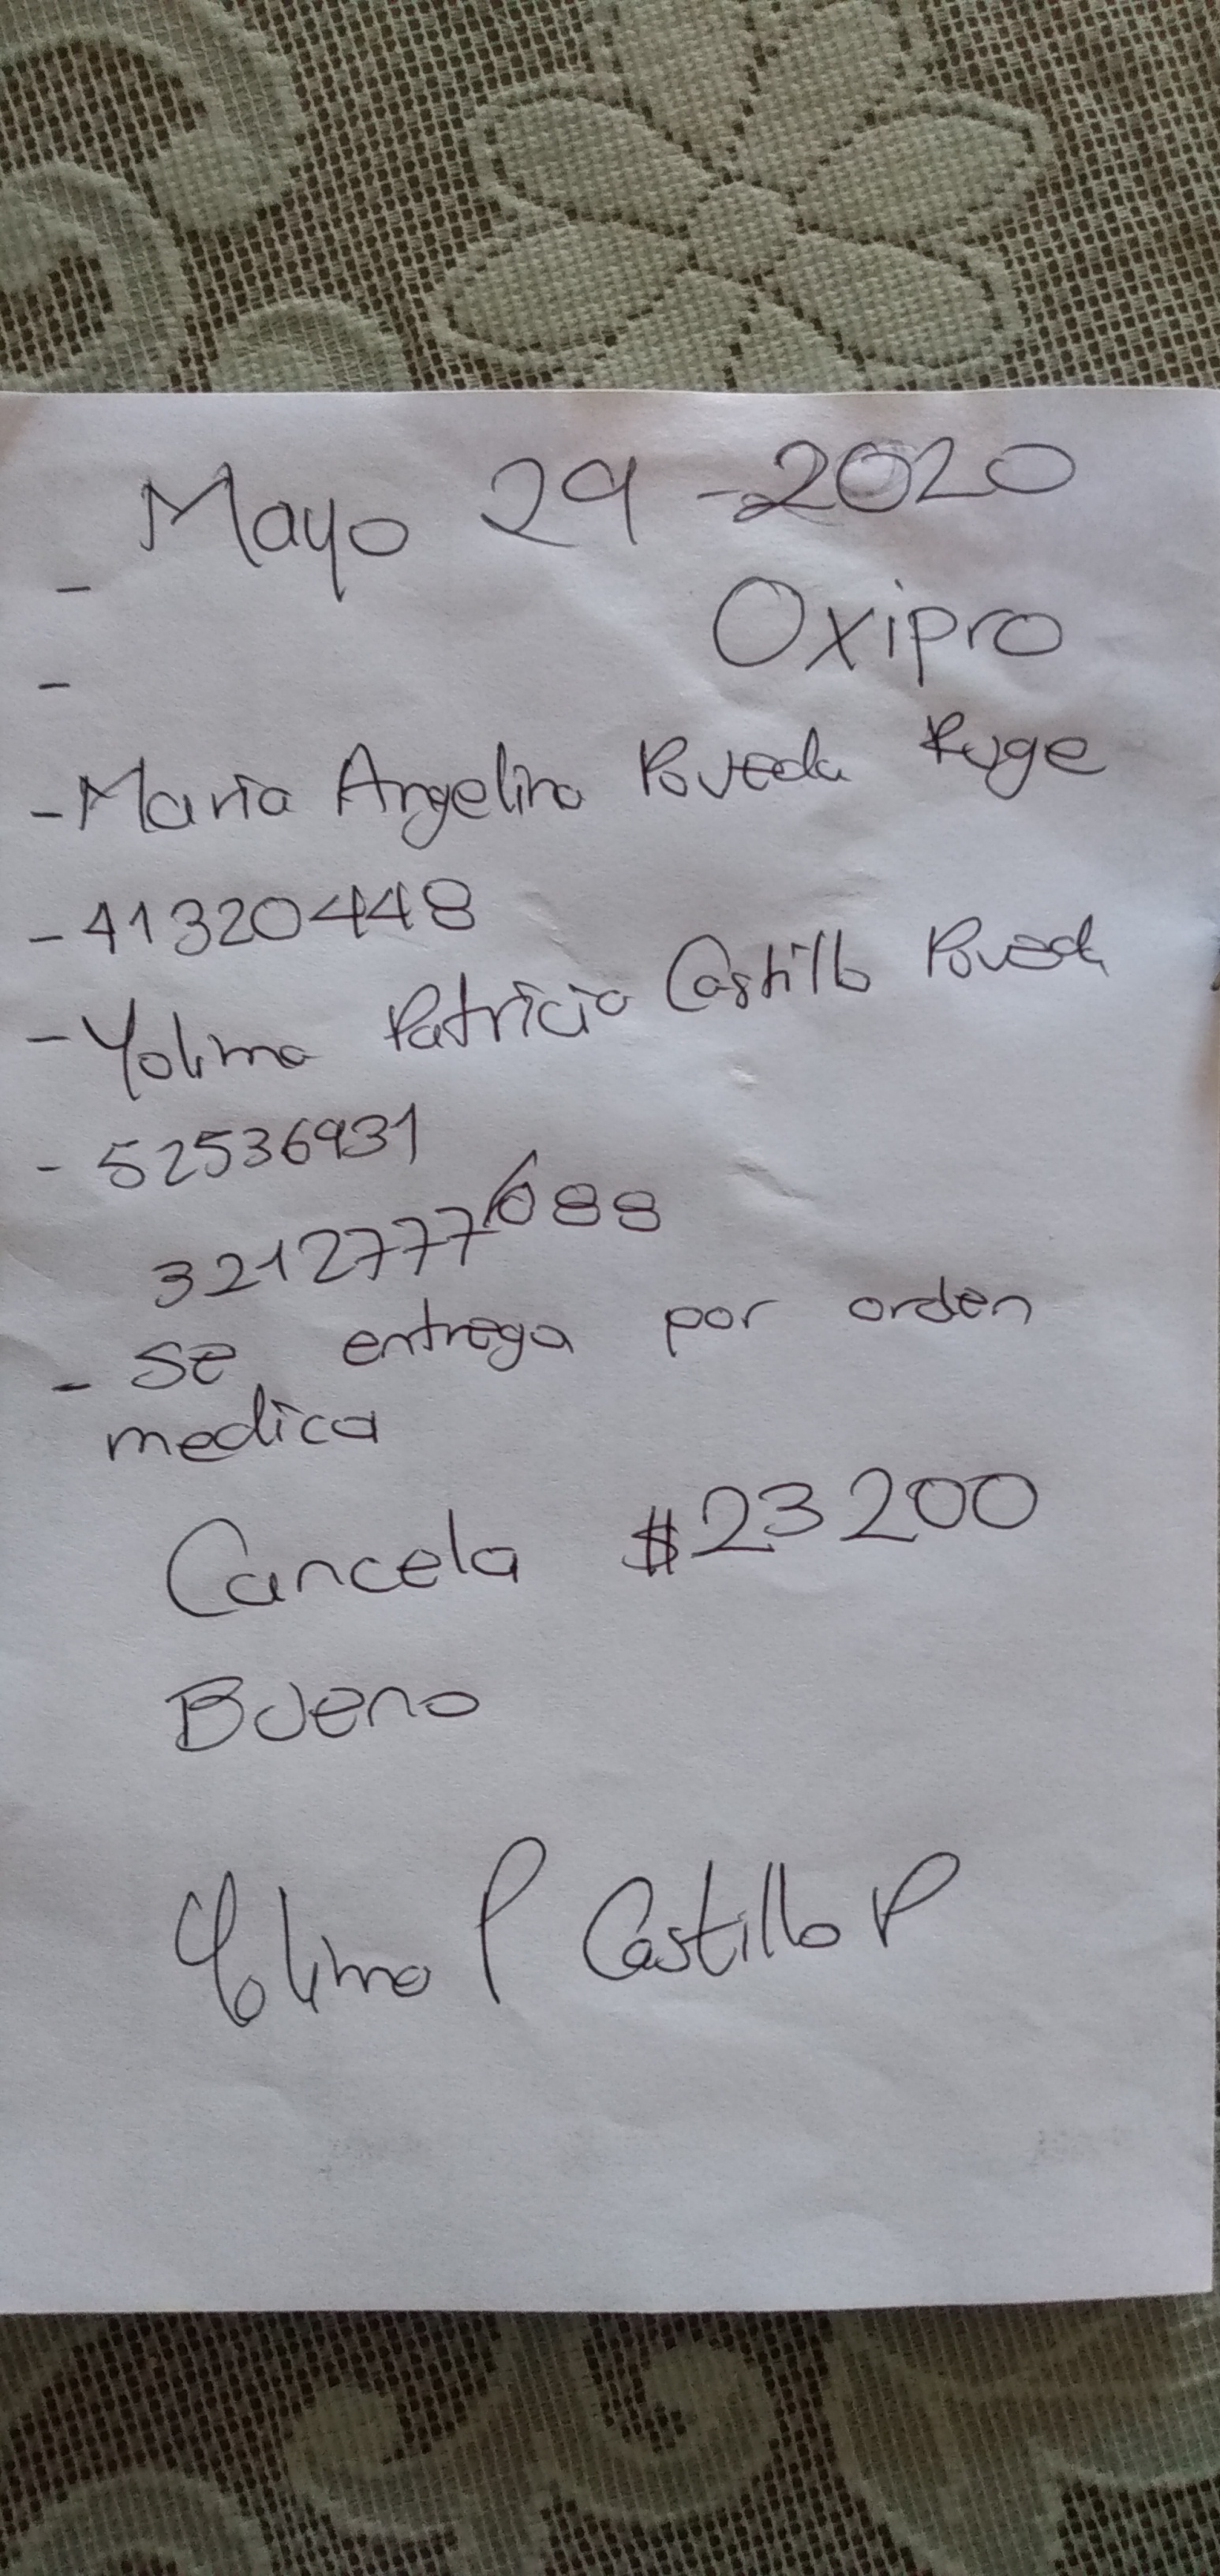 Mayo 29 - 2020
-
Oxipro
-
- Maria Angelina Poveda Ruge
- 41320448
- Yolima Patricia Castillo Poveda
- 52536931
3212777688
- se entrega por orden
medica
Cancela $23200
Bueno
Yolima P Castillo P